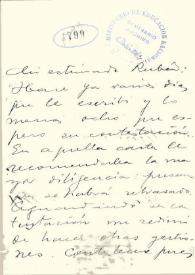 1899
MINISTERIO DE EDUCACION NACIONAL
ARCHIVO
Mi estimado Rubén:
Hace ya varios días
que le escribí y lo
menos ocho que es-
pero su contestación.
En aquella carta le
recomendaba la ma-
yor diligencia:
se habrá retrasado.
Aguardando su con-
testación me
de hacer otras gestio-
nes. Contésteme pues